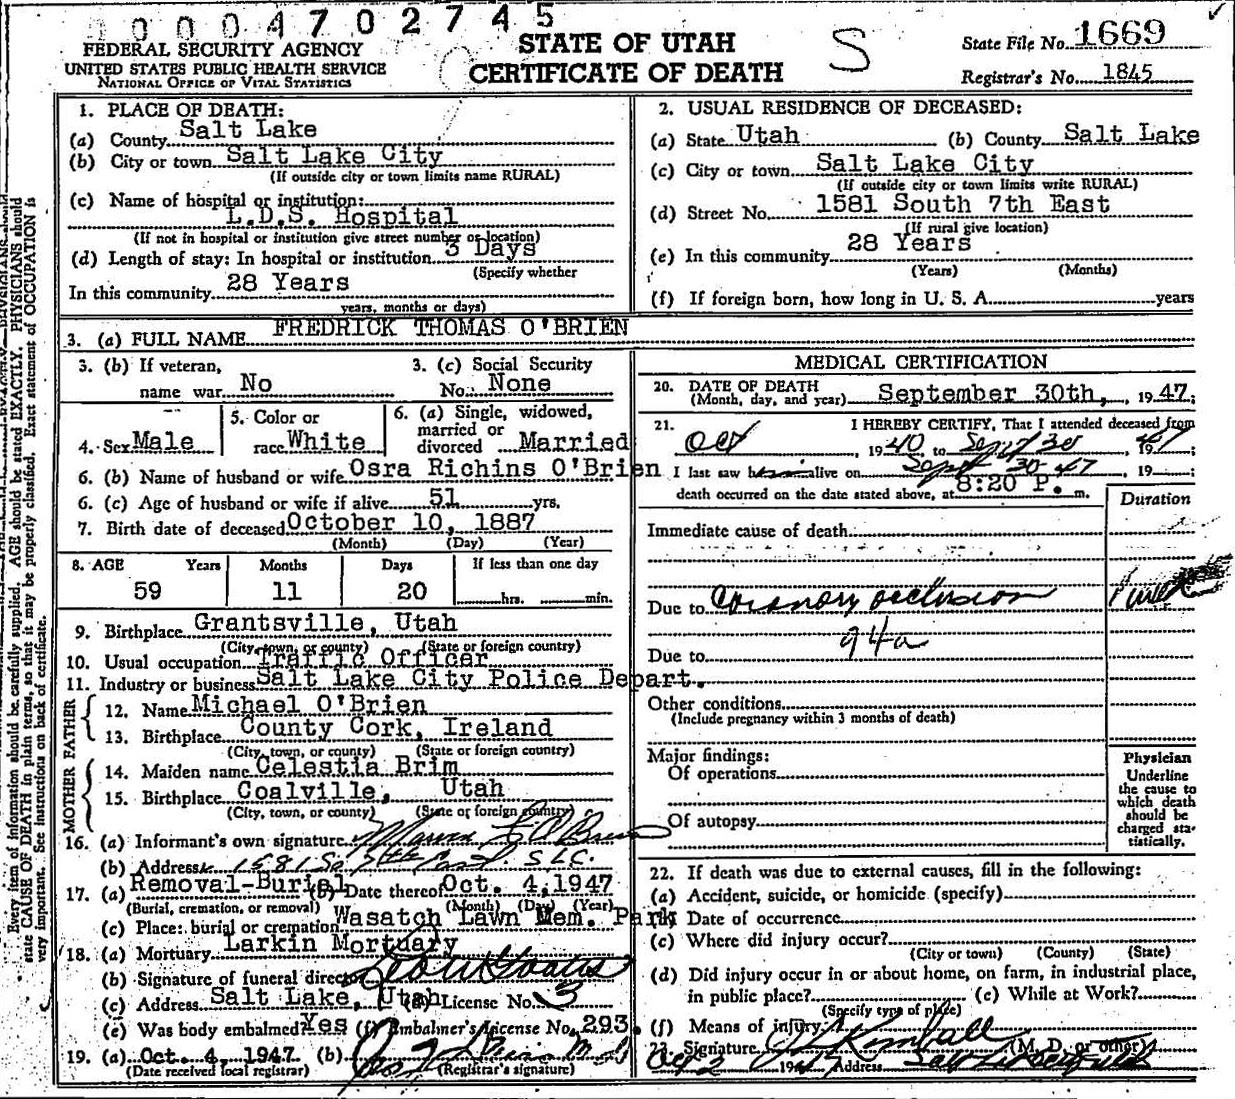 0 0 0 0 4 7 0 2 7 4 5
FEDERAL SECURITY AGENCY
UNITED STATES PUBLIC HEALTH SERVICE
NATIONAL OFFICE OF VITAL STATISTICS
STATE OF UTAH
CERTIFICATE OF DEATH
S
State File No. 1669
Registrar's No. 1845
1. PLACE OF DEATH:
(a) County Salt Lake
(b) City or town Salt Lake City
(If outside city or town limits name RURAL)
(c) Name of hospital or institution:
L.D.S. Hospital
(If not in hospital or institution give street number or location)
(d) Length of stay: In hospital or institution 3 Days
(Specify whether
In this community 28 Years
years, months or days)
2. USUAL RESIDENCE OF DECEASED:
(a) State Utah (b) County Salt Lake
(c) City or town Salt Lake City
(If outside city or town limits write RURAL)
(d) Street No. 1581 South 7th East
(If rural give location)
(e) In this community 28 Years
(Years) (Months)
(f) If foreign born, how long in U. S. A. years
3. (a) FULL NAME FREDRICK THOMAS O'BRIEN
3. (b) If veteran,
name war No
3. (c) Social Security
No. None
4. Sex Male
5. Color or
race White
6. (a) Single, widowed,
married or
divorced Married
6. (b) Name of husband or wife Osra Richins O'Brien
6. (c) Age of husband or wife if alive 51 yrs.
7. Birth date of deceased October 10, 1887
(Month) (Day) (Year)
8. AGE Years Months Days If less than one day
59 11 20 hrs. min.
9. Birthplace Grantsville, Utah
(City, town, or county) (State or foreign country)
10. Usual occupation Traffic Officer
11. Industry or business Salt Lake City Police Depart.
FATHER
12. Name Michael O'Brien
13. Birthplace County Cork, Ireland
(City, town, or county) (State or foreign country)
MOTHER
14. Maiden name Celestia Brim
15. Birthplace Coalville, Utah
(City, town, or county) (State or foreign country)
16. (a) Informant's own signature O'Brien
(b) Address 1581 So. 7th East. SLC.
17. (a) Removal-Burial (b) Date thereof Oct. 4, 1947
(Burial, cremation, or removal) (Month) (Day) (Year)
(c) Place: burial or cremation Wasatch Lawn Mem. Park
18. (a) Mortuary Larkin Mortuary
(b) Signature of funeral director
(c) Address Salt Lake, Utah (d) License No. 3
(e) Was body embalmed? Yes (f) Embalmer's License No. 293.
19. (a) Oct. 4, 1947 (b) M.D.
(Date received local registrar) (Registrar's signature)
MEDICAL CERTIFICATION
20. DATE OF DEATH
(Month, day, and year) September 30th, 1947;
21. I HEREBY CERTIFY, That I attended deceased from
Oct 1940 to Sept 30, 1947;
I last saw h alive on Sept 30 47, 19 ;
death occurred on the date stated above, at 8:20 P. m.
Duration
Immediate cause of death
Due to Coronary occlusion
94a
Due to
Other conditions
(Include pregnancy within 3 months of death)
Major findings:
Of operations
Of autopsy
Physician
Underline
the cause to
which death
should be
charged sta-
tistically.
22. If death was due to external causes, fill in the following:
(a) Accident, suicide, or homicide (specify)
(b) Date of occurrence
(c) Where did injury occur?
(City or town) (County) (State)
(d) Did injury occur in or about home, on farm, in industrial place,
in public place? (e) While at Work?
(Specify type of place)
(f) Means of injury
23. Signature Kimball (M. D. or other)
Oct 2 1947 Address
Every item of information should be carefully supplied. AGE should be stated EXACTLY. PHYSICIANS should
state CAUSE OF DEATH in plain terms, so that it may be properly classified. Exact statement of OCCUPATION is
very important. See instructions on back of certificate.